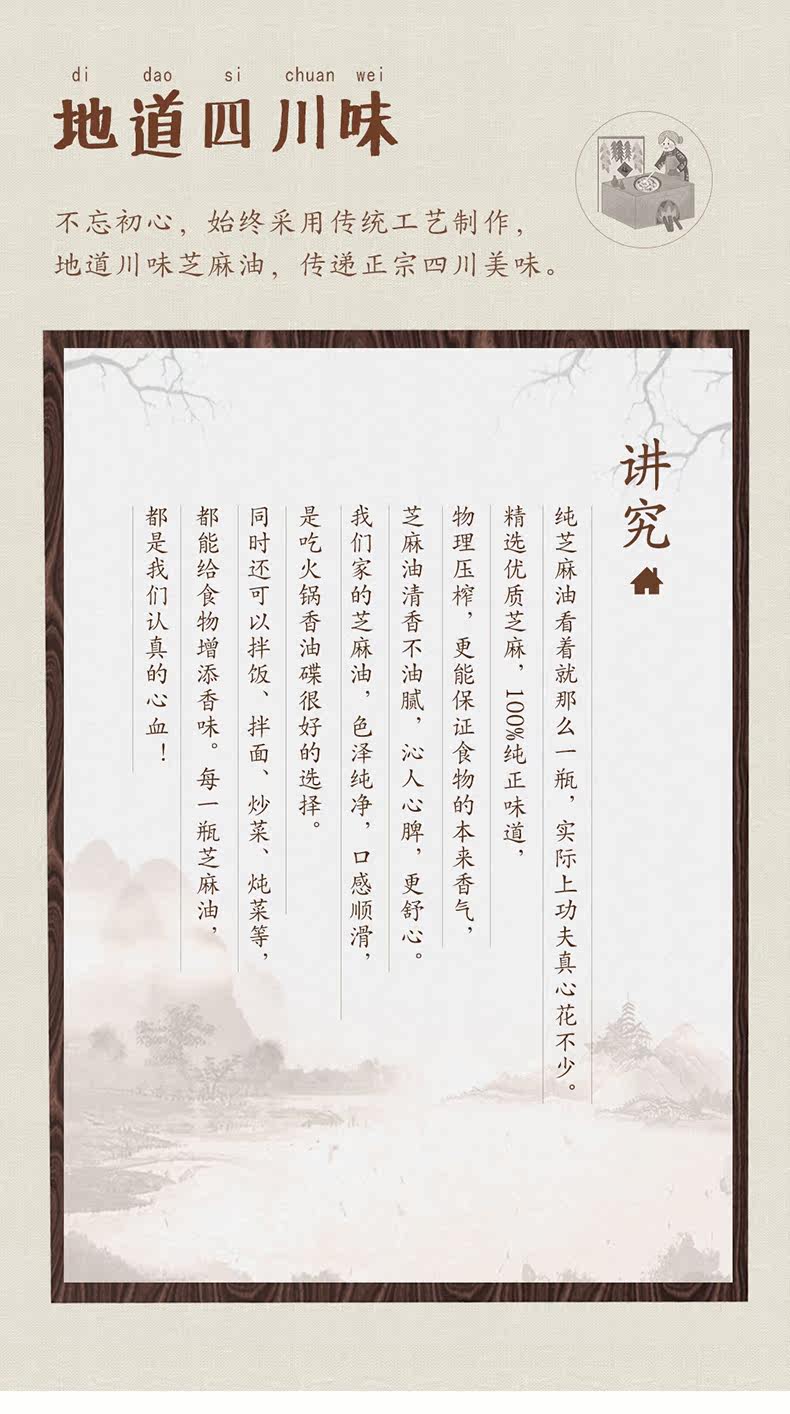 di dao si chuan wei
地道四川味
不忘初心，始终采用传统工艺制作，
地道川味芝麻油，传递正宗四川美味。
讲究
纯芝麻油看着就那么一瓶，实际上功夫真心花不少。
精选优质芝麻，100%纯正味道，
物理压榨，更能保证食物的本来香气，
芝麻油清香不油腻，沁人心脾，更舒心。
我们家的芝麻油，色泽纯净，口感顺滑，
是吃火锅香油碟很好的选择。
同时还可以拌饭、拌面、炒菜、炖菜等，
都能给食物增添香味。每一瓶芝麻油，
都是我们认真的心血！